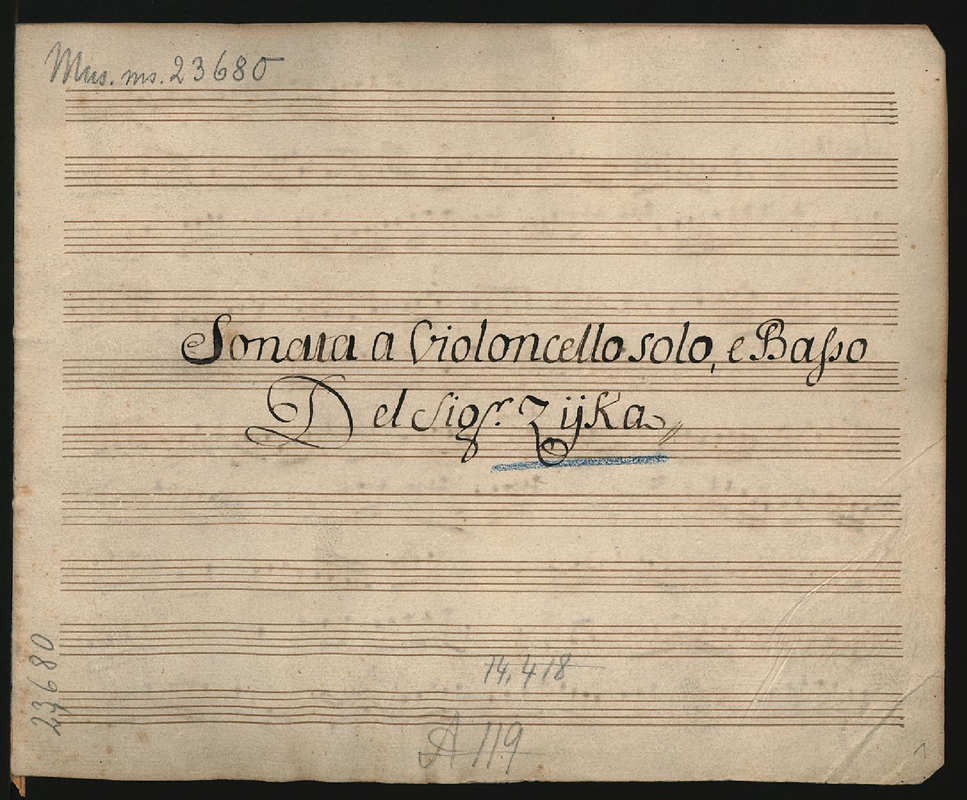 Mus. ms. 23680
Sonata a Violoncello solo, e Basso
Del Sigr. Zijka
23680
14,418
A 119
1